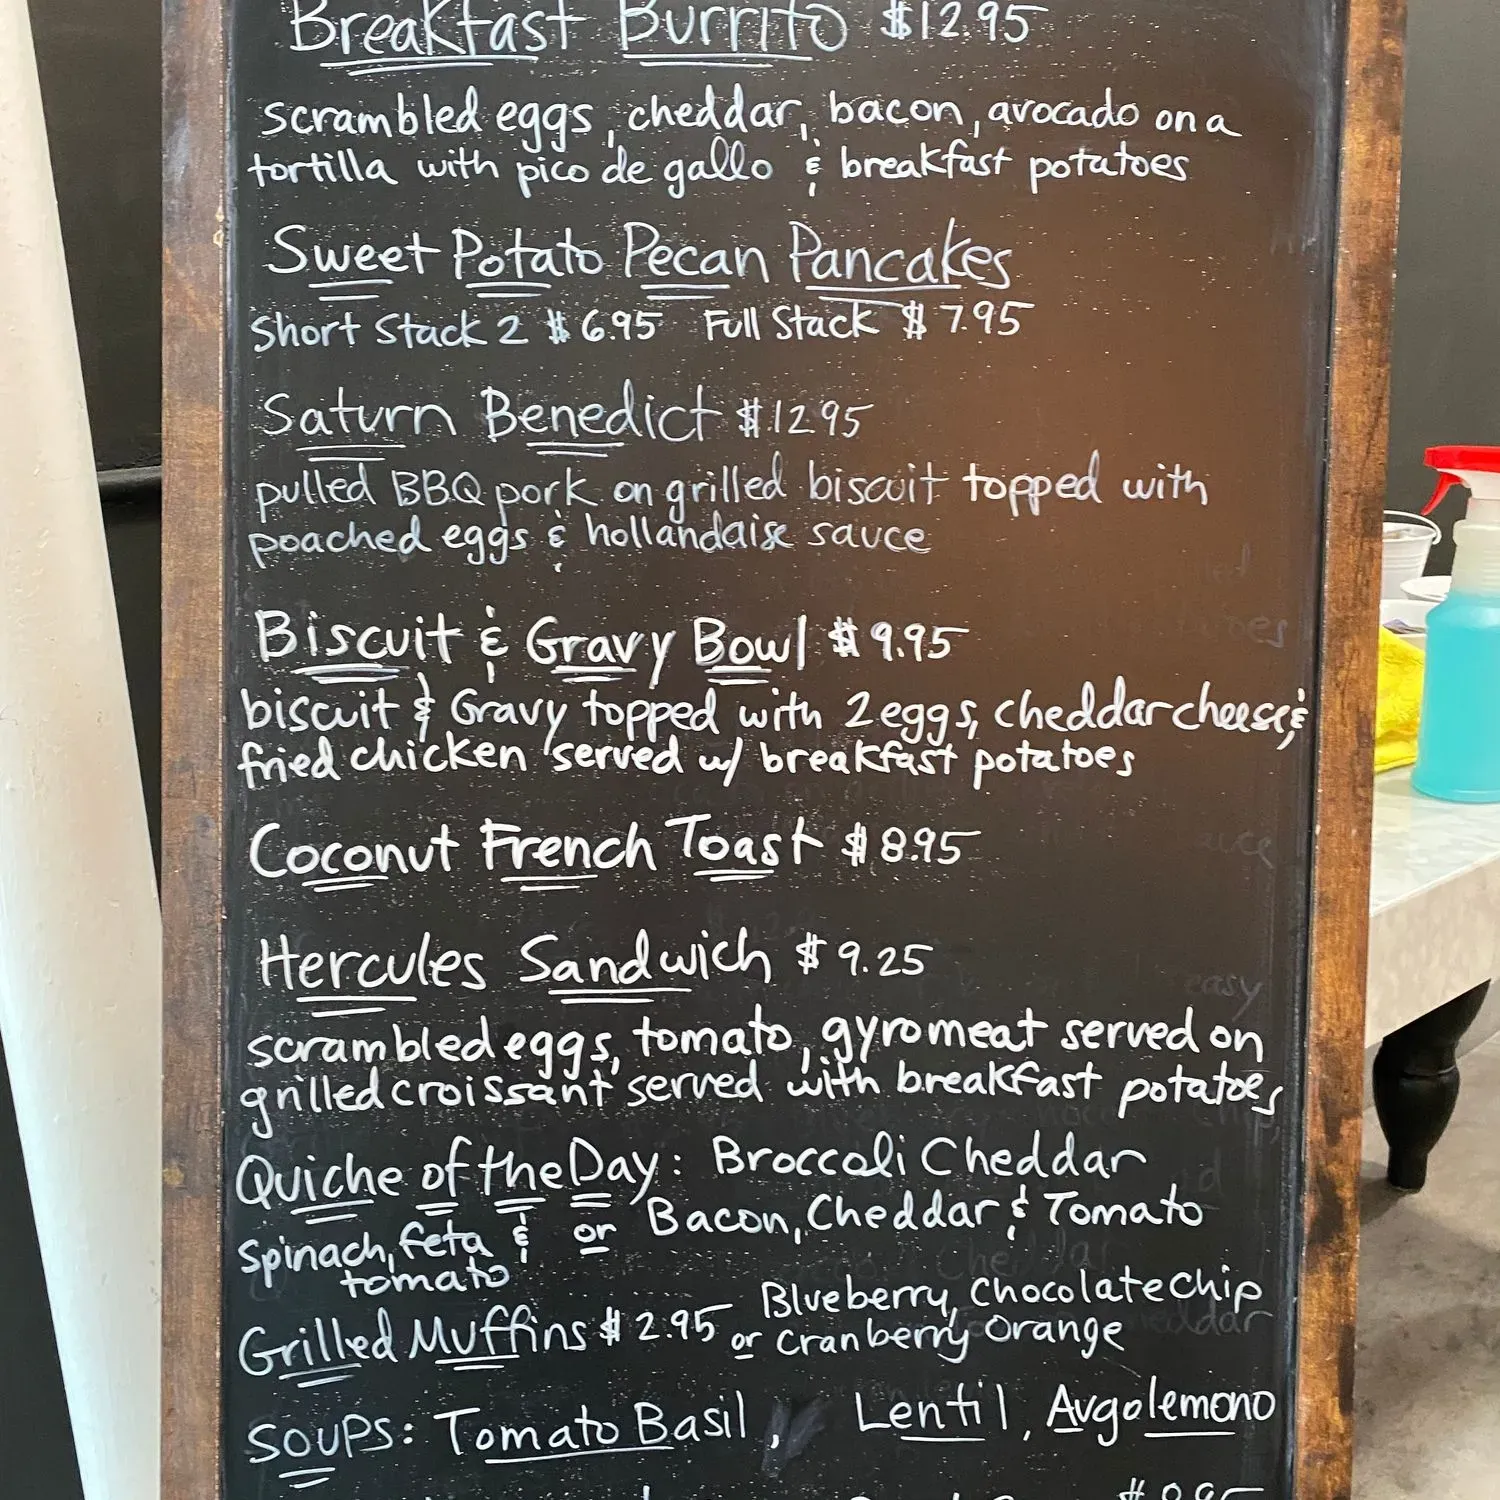 Breakfast Burrito $12.95
scrambled eggs, cheddar, bacon, avocado on a
tortilla with pico de gallo & breakfast potatoes
Sweet Potato Pecan Pancakes
Short Stack 2 $6.95 Full Stack $7.95
Saturn Benedict $12.95
pulled BBQ pork on grilled biscuit topped with
poached eggs & hollandaise sauce
Biscuit & Gravy Bowl $9.95
biscuit & Gravy topped with 2 eggs, cheddar cheese, &
fried chicken served w/ breakfast potatoes
Coconut French Toast $8.95
Hercules Sandwich $9.25
scrambled eggs, tomato, gyro meat served on
grilled croissant served with breakfast potatoes
Quiche of the Day: Broccoli Cheddar
Spinach, feta & tomato or Bacon, Cheddar & Tomato
Grilled Muffins $2.95 Blueberry, Chocolate Chip
or Cranberry Orange
Soups: Tomato Basil, Lentil, Avgolemono